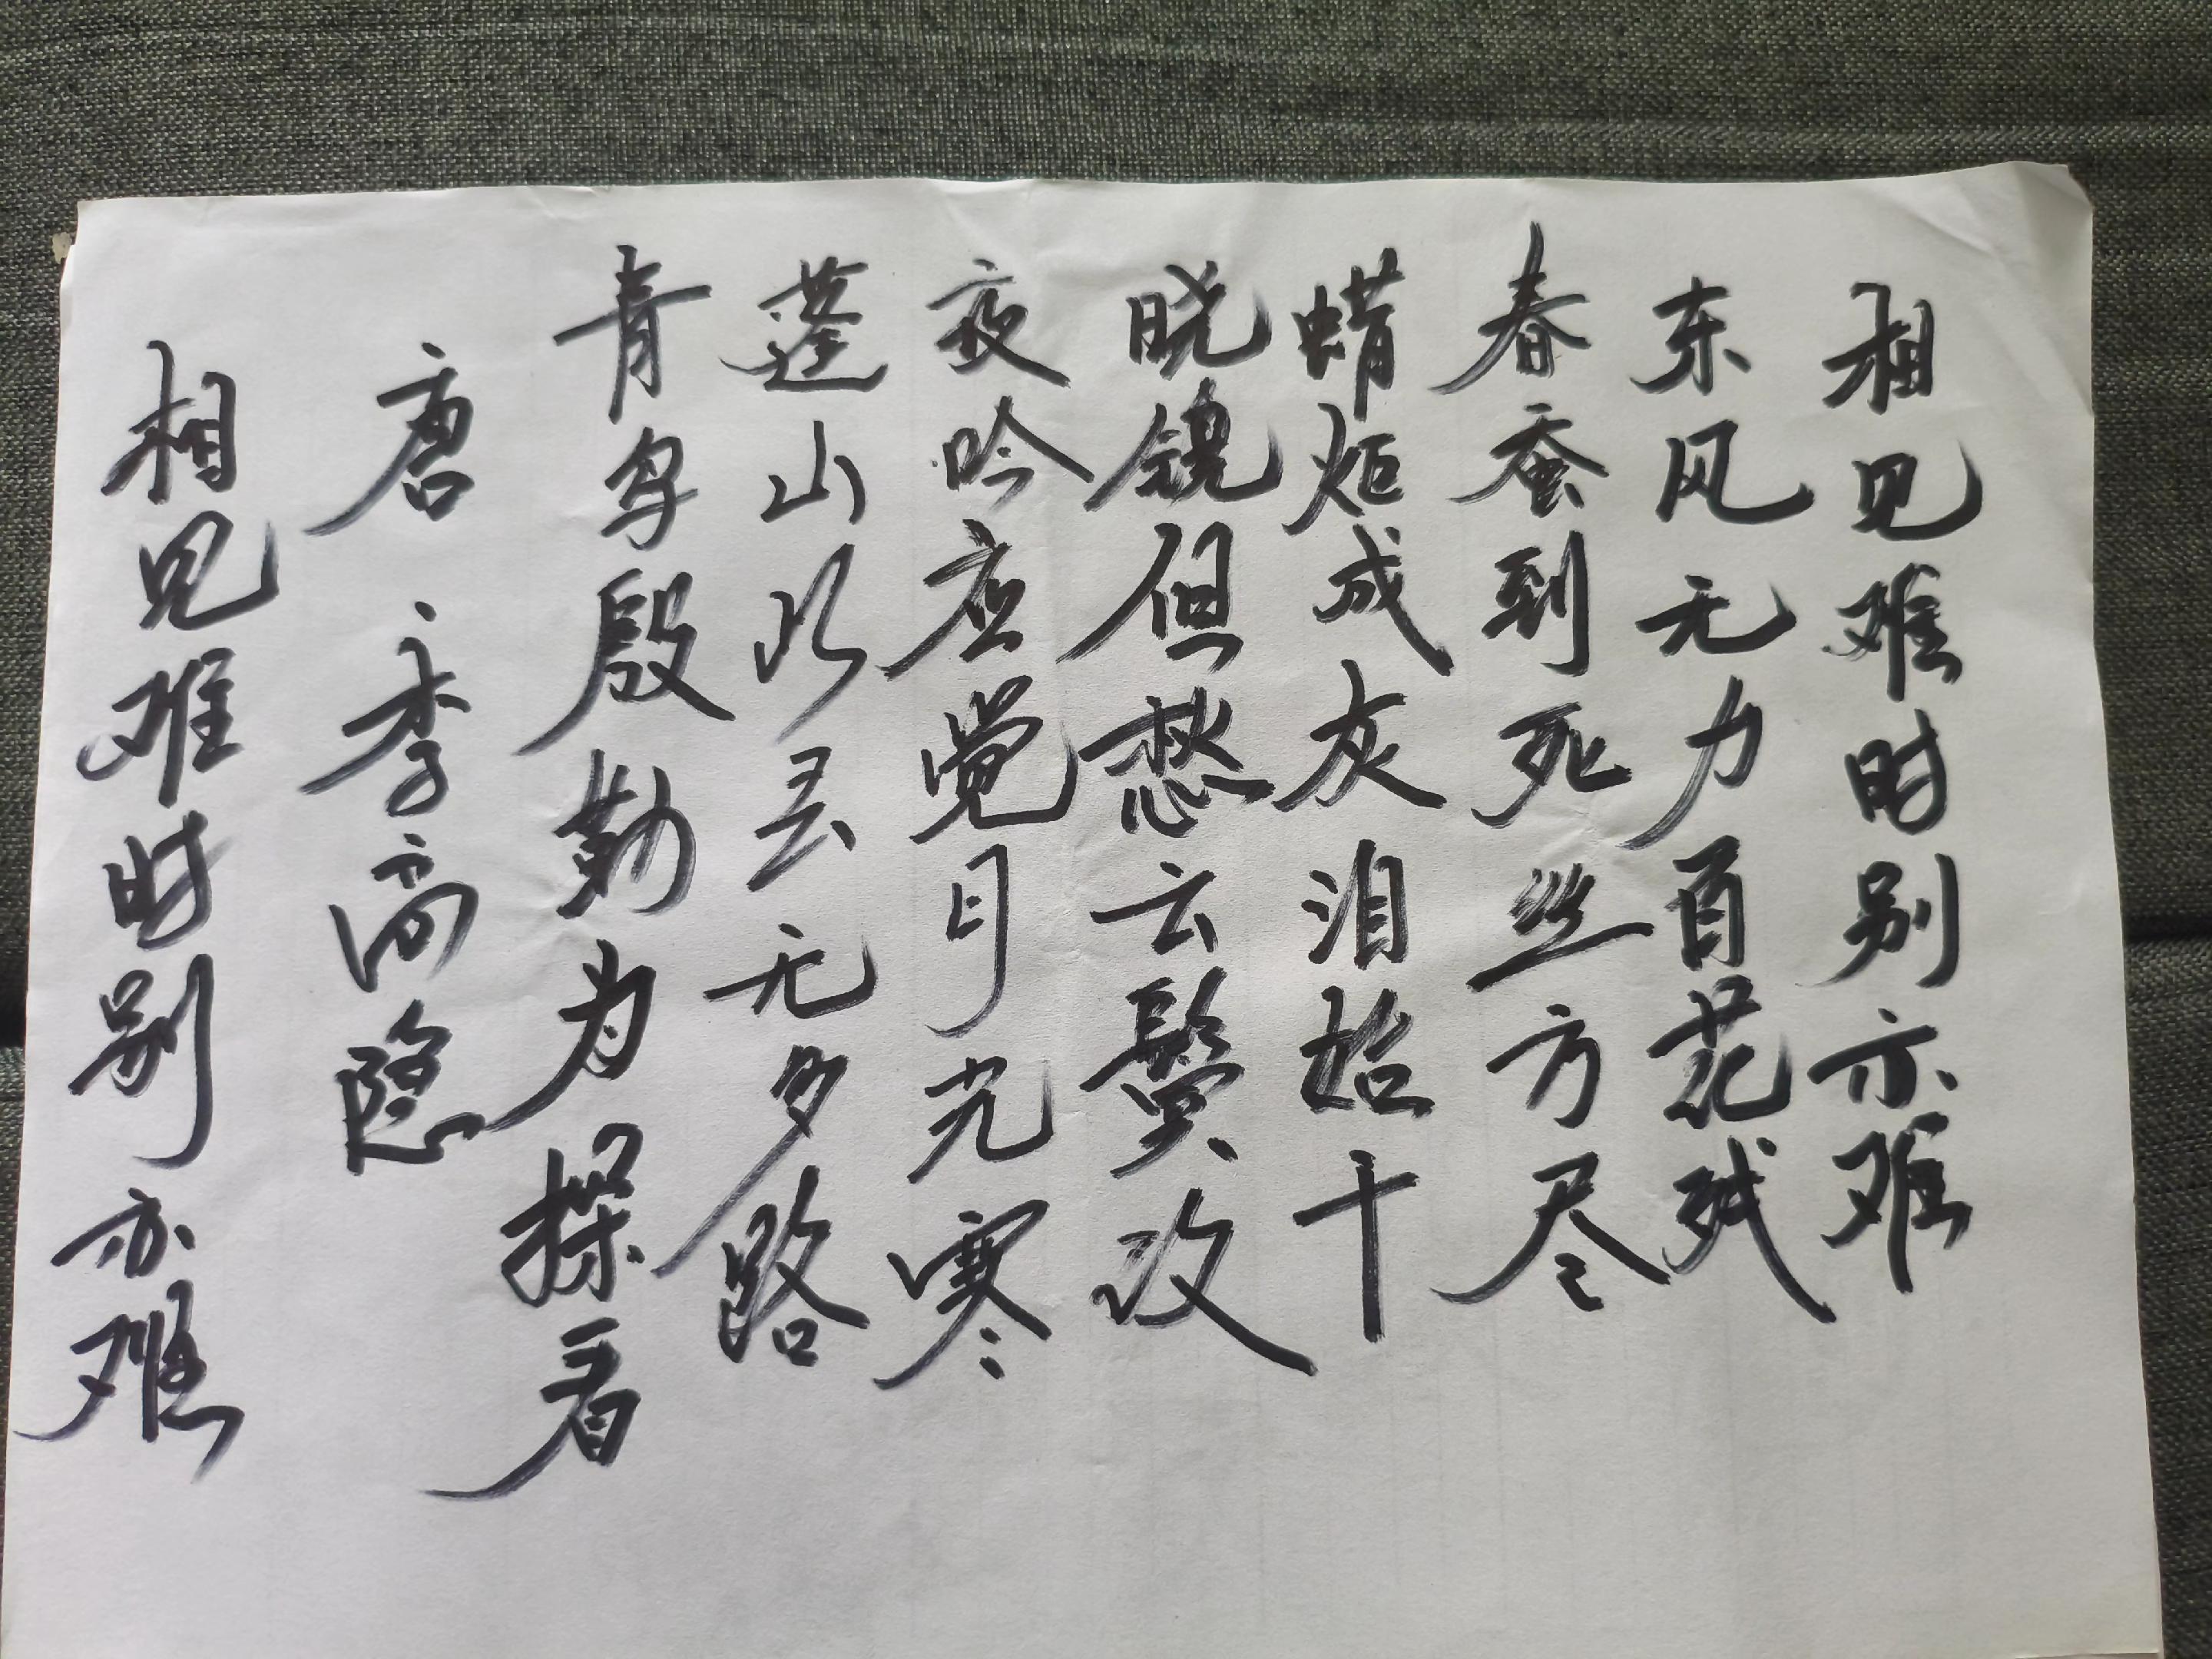 相见难时别亦难
东风无力百花残
春蚕到死丝方尽
蜡炬成灰泪始干
晓镜但愁云鬓改
夜吟应觉月光寒
蓬山此去无多路
青鸟殷勤为探看
唐 李商隐
相见难时别亦难